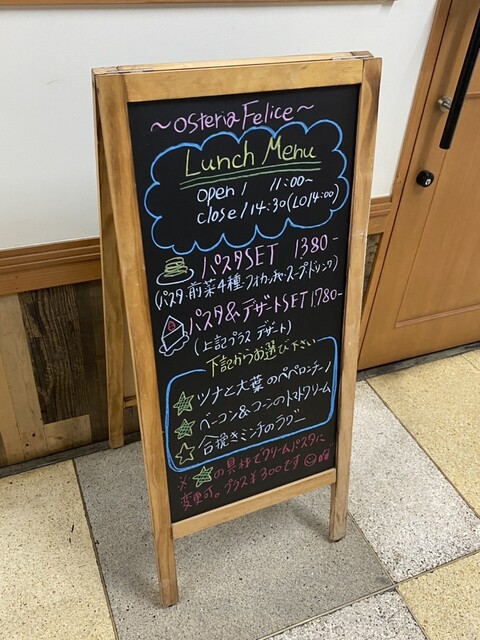 ～osteria Felice～
Lunch Menu
open / 11:00～
close / 14:30(LO14:00)
パスタSET 1380-
(パスタ・前菜4種・フォカッチャ・スープ・ドリンク)
パスタ&デザートSET 1,780-
(上記プラス デザート)
下記からお選び下さい
☆ツナと大葉のペペロンチーノ
☆ベーコン&コーンのトマトクリーム
☆合挽きミンチのラグー
※☆の具材でクリームパスタに
変更可。プラス¥300です